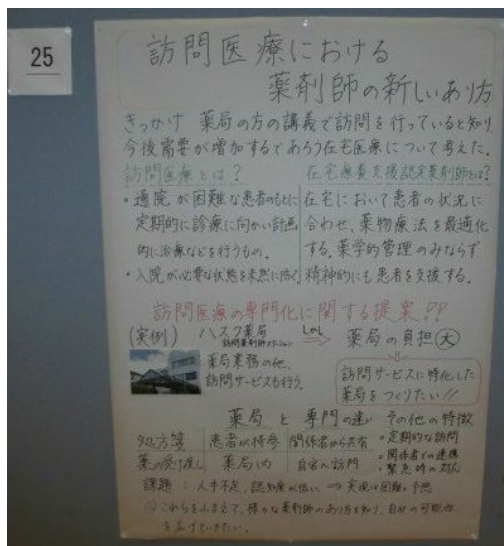 25
訪問医療における
薬剤師の新しいあり方
きっかけ 薬局の方の講義で訪問を行っていると知り
今後需要が増加するであろう在宅医療について考えた。
訪問医療とは?
・通院が困難な患者のもとに
定期的に診療に向かい計画
的に治療などを行うもの。
・入院が必要な状態を未然に防ぐ
在宅療養支援認定薬剤師とは?
在宅において患者の状況に
合わせ、薬物療法を最適化
する。薬学的管理のみならず
精神的にも患者を支援する。
訪問医療の専門化に関する提案!!
(実例) ハスク薬局
訪問薬剤師ステーション
薬局業務の他、
訪問サービスも行う。
しかし
薬局の負担 大
訪問サービスに特化した
薬局をつくりたい!!
薬局と専門の違い
処方箋 患者が持参 関係者から共有
薬の受け渡し 薬局内 自宅へ訪問
その他の特徴
・定期的な訪問
・関係者での連携
・緊急時の対応
課題:人手不足、認知度が低い ⇒ 実現は困難と予想
これらをふまえて、様々な薬剤師のあり方を知り、自分の可能性
を広げていきたい。